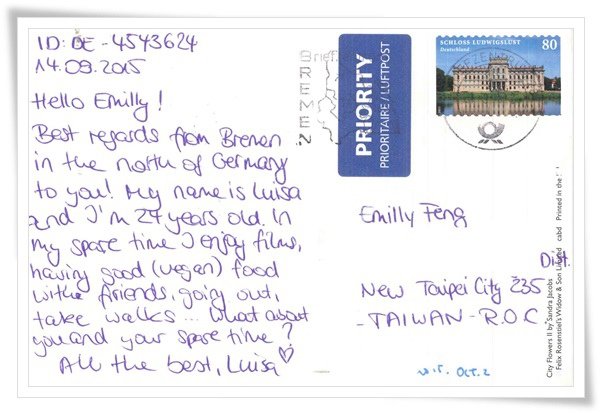 ID: DE-4543624
14.09.2015
Hello Emilly!
Best regards from Bremen
in the north of Germany
to you! My name is Luisa
and I'm 27 years old. In
my spare time I enjoy films,
having good (vegan) food
withe friends, going out,
take walks... What about
you and your spare time?
All the best, Luisa ♡
Brief
BREMEN
PRIORITY
PRIORITAIRE / LUFTPOST
SCHLOSS LUDWIGSLUST 80
Deutschland
Emilly Feng
Dist.
New Taipei City 235
-TAIWAN-R.O.C.
2015. Oct. 2
City Flowers II by Sandra Jacobs
Felix Rosenstiel's Widow & Son Limited cabd Printed in the